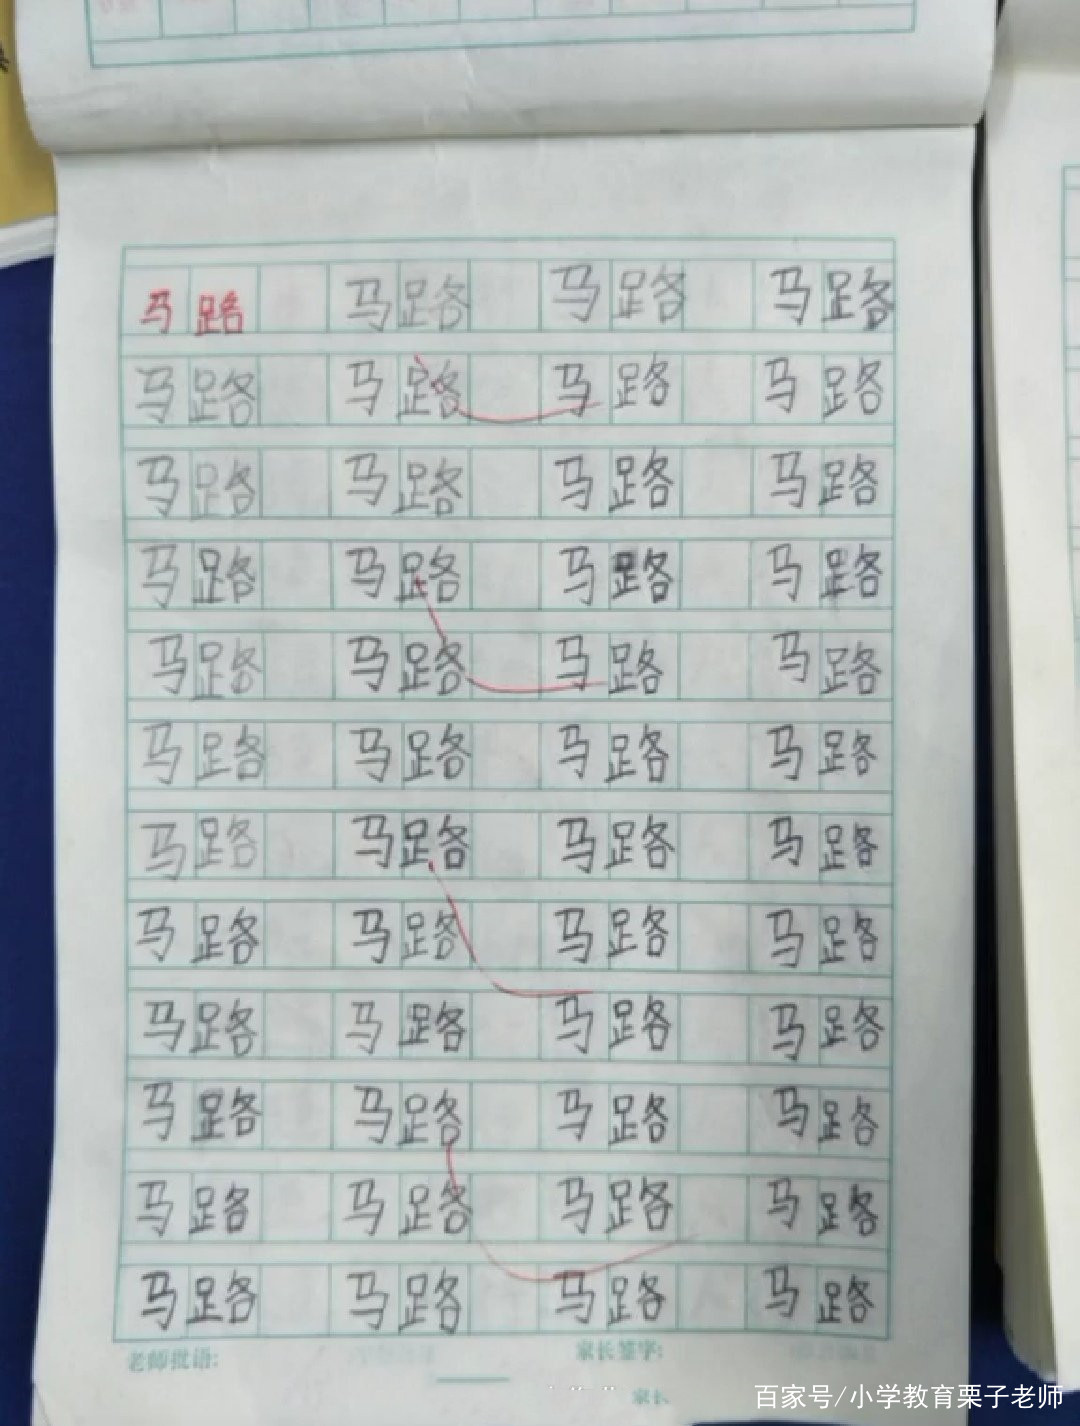 马路 马路 马路 马路
马路 马路 马路 马路
马路 马路 马路 马路
马路 马路 马路 马路
马路 马路 马路 马路
马路 马路 马路 马路
马路 马路 马路 马路
马路 马路 马路 马路
马路 马路 马路 马路
马路 马路 马路 马路
马路 马路 马路 马路
马路 马路 马路 马路
老师批语: 家长签字:
家长
百家号/小学教育栗子老师